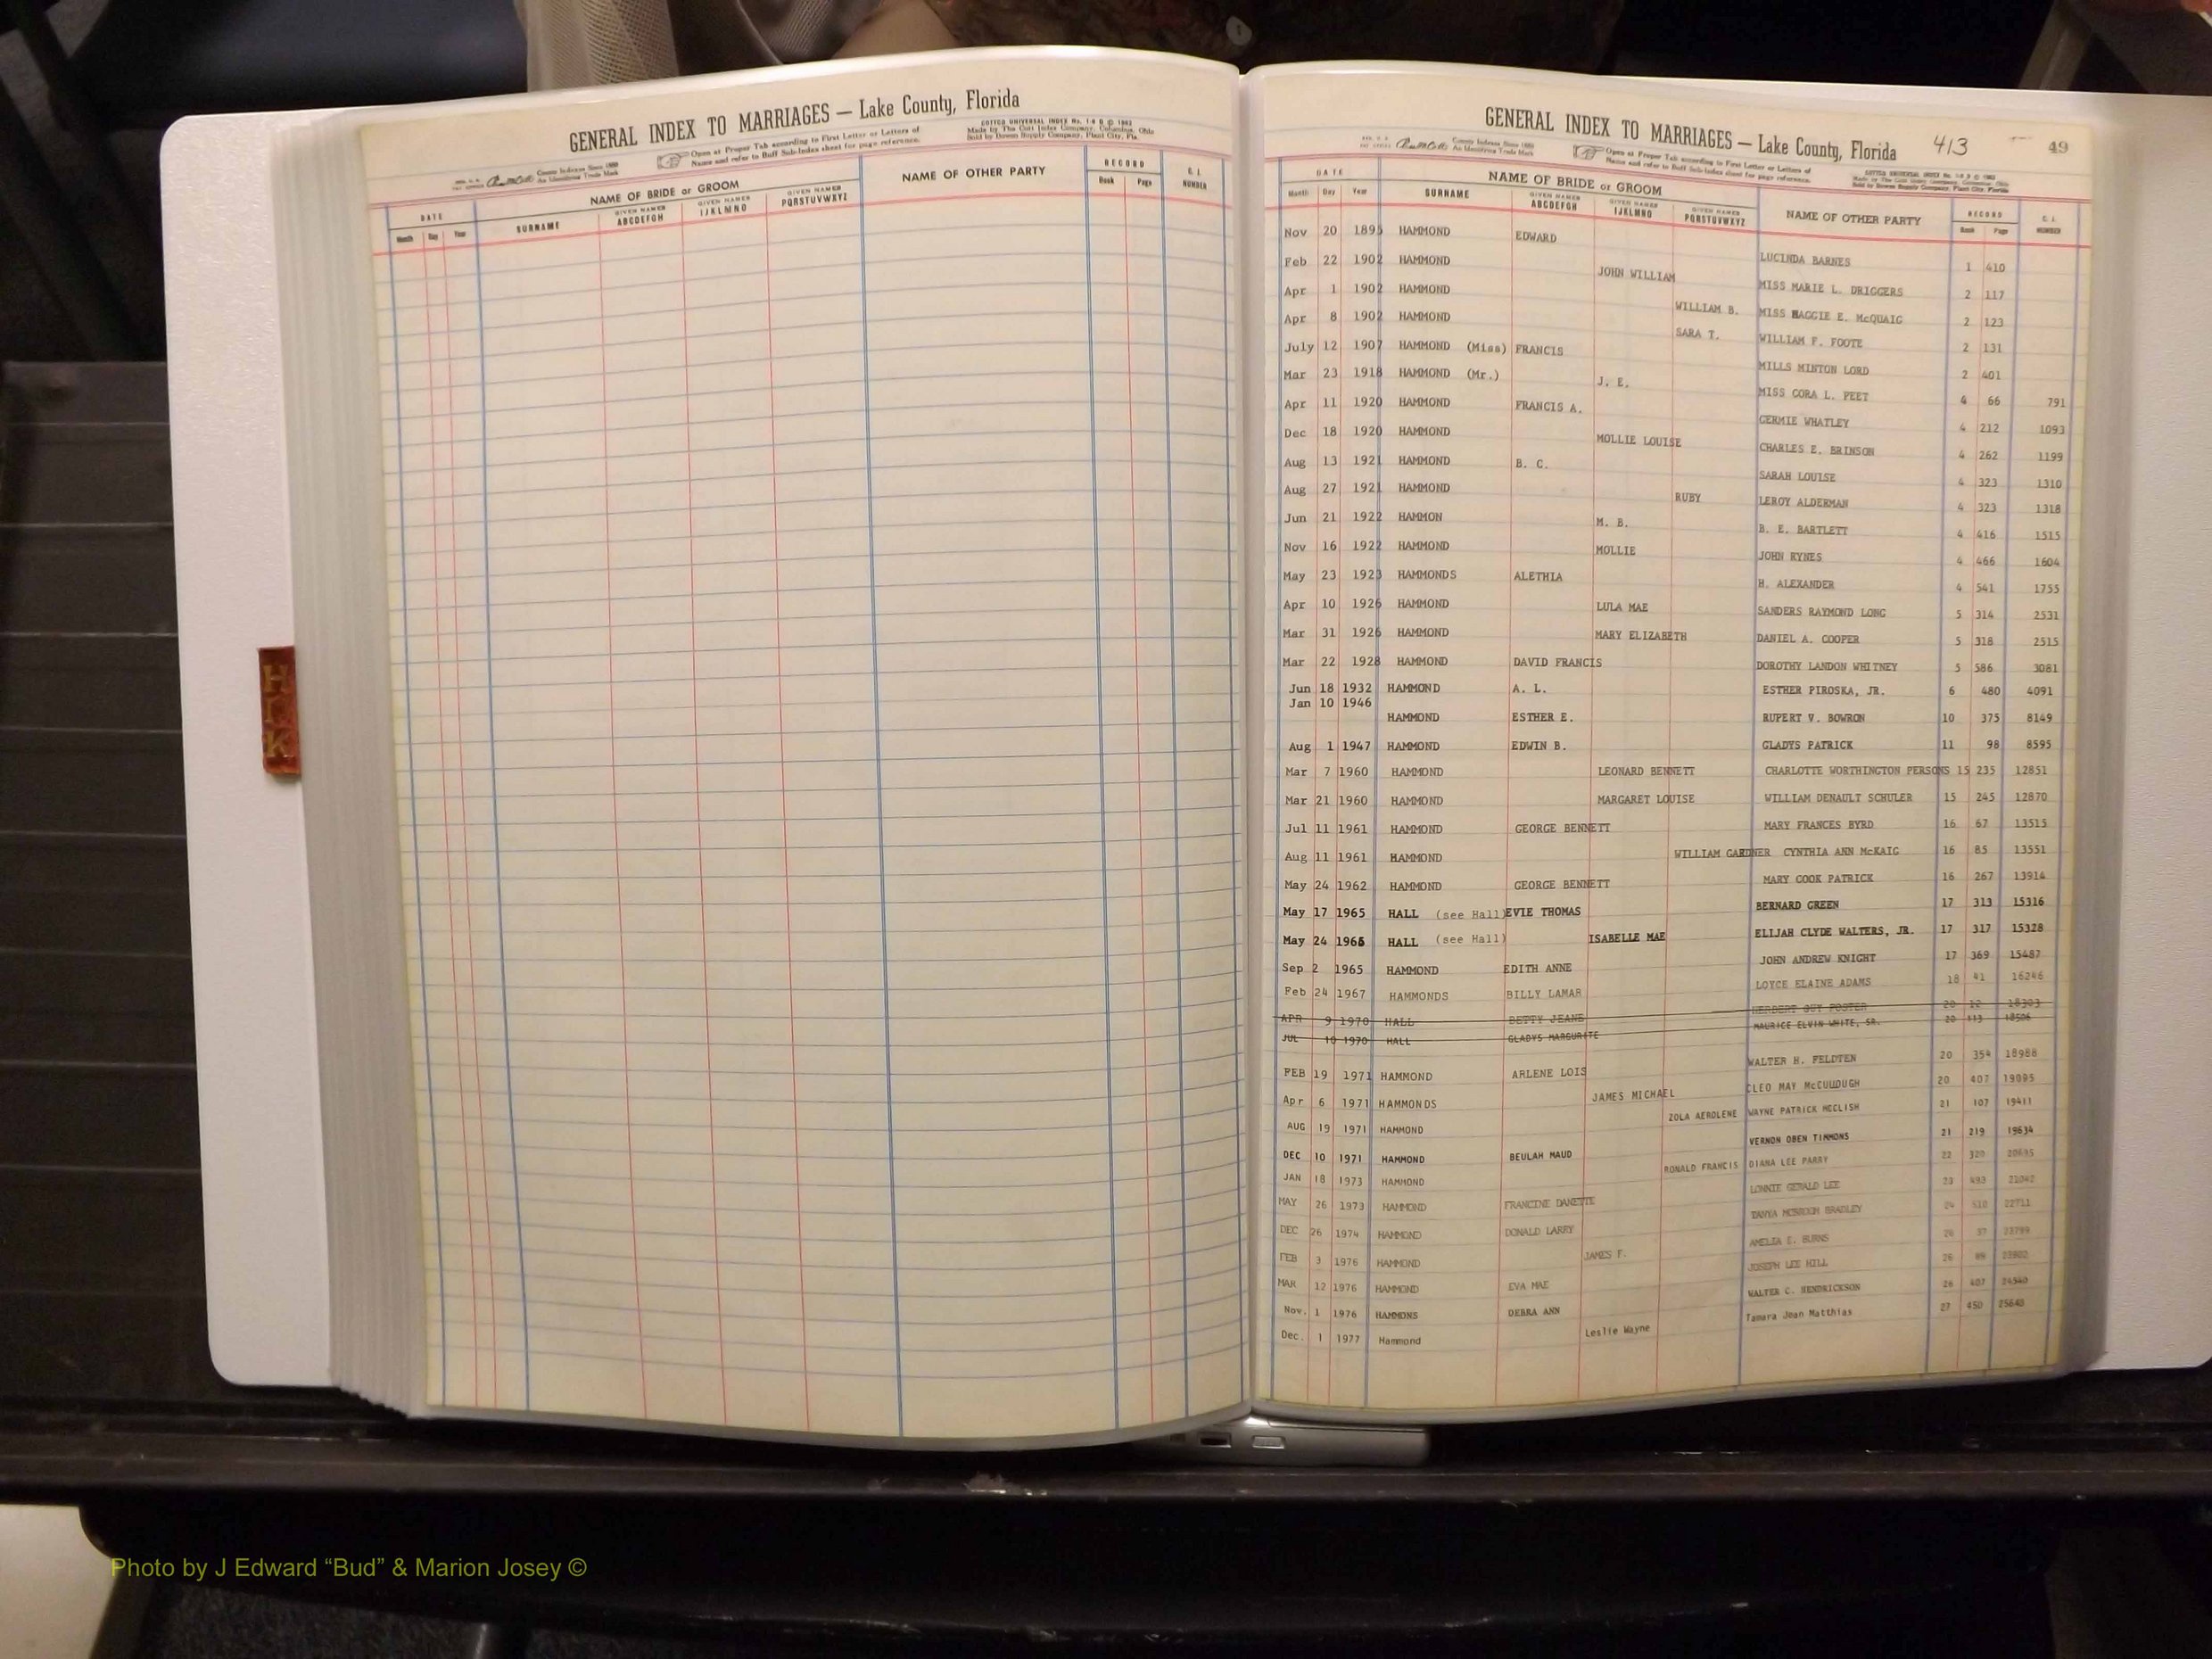 GENERAL INDEX TO MARRIAGES — Lake County, Florida
COTT'S UNIVERSAL INDEX No. 1-6 B © 1963
Made by The Cott Index Company, Columbus, Ohio
Sold by Bowen Supply Company, Plant City, Fla.
County Indexes Since 1888
An Identifying Trade Mark
Open at Proper Tab according to First Letter or Letters of
Name and refer to Buff Sub-Index sheet for page reference.
DATE NAME OF BRIDE or GROOM NAME OF OTHER PARTY RECORD
Month Day Year SURNAME GIVEN NAMES ABCDEFGH GIVEN NAMES IJKLMNO GIVEN NAMES PQRSTUVWXYZ Book Page NUMBER
H I K
GENERAL INDEX TO MARRIAGES — Lake County, Florida 413 49
County Indexes Since 1888
An Identifying Trade Mark
Open at Proper Tab according to First Letter or Letters of
Name and refer to Buff Sub-Index sheet for page reference.
DATE NAME OF BRIDE or GROOM NAME OF OTHER PARTY RECORD
Month Day Year SURNAME GIVEN NAMES ABCDEFGH GIVEN NAMES IJKLMNO GIVEN NAMES PQRSTUVWXYZ Book Page NUMBER
Nov 20 1895 HAMMOND EDWARD LUCINDA BARNES 1 410
Feb 22 1902 HAMMOND JOHN WILLIAM MISS MARIE L. DRIGGERS 2 117
Apr 1 1902 HAMMOND WILLIAM B. MISS MAGGIE E. McQUAIG 2 123
Apr 8 1902 HAMMOND SARA T. WILLIAM F. FOOTE 2 131
July 12 1907 HAMMOND (Miss) FRANCIS MILLS MINTON LORD 2 401
Mar 23 1918 HAMMOND (Mr.) J. E. MISS CORA L. PEET 4 66 791
Apr 11 1920 HAMMOND FRANCIS A. GERMIE WHATLEY 4 212 1093
Dec 18 1920 HAMMOND MOLLIE LOUISE CHARLES E. BRINSON 4 262 1199
Aug 13 1921 HAMMOND B. C. SARAH LOUISE 4 323 1310
Aug 27 1921 HAMMOND RUBY LEROY ALDERMAN 4 323 1318
Jun 21 1922 HAMMON M. B. B. E. BARTLETT 4 416 1515
Nov 16 1922 HAMMOND MOLLIE JOHN RYNES 4 466 1604
May 23 1923 HAMMONDS ALETHIA H. ALEXANDER 4 541 1755
Apr 10 1926 HAMMOND LULA MAE SANDERS RAYMOND LONG 5 314 2531
Mar 31 1926 HAMMOND MARY ELIZABETH DANIEL A. COOPER 5 318 2515
Mar 22 1928 HAMMOND DAVID FRANCIS DOROTHY LANDON WHITNEY 5 586 3081
Jun 18 1932 HAMMOND A. L. ESTHER PIROSKA, JR. 6 480 4091
Jan 10 1946
HAMMOND ESTHER E. RUPERT V. BOWRON 10 375 8149
Aug 1 1947 HAMMOND EDWIN B. GLADYS PATRICK 11 98 8595
Mar 7 1960 HAMMOND LEONARD BENNETT CHARLOTTE WORTHINGTON PERSONS 15 235 12851
Mar 21 1960 HAMMOND MARGARET LOUISE WILLIAM DENAULT SCHULER 15 245 12870
Jul 11 1961 HAMMOND GEORGE BENNETT MARY FRANCES BYRD 16 67 13515
Aug 11 1961 HAMMOND WILLIAM GARDNER CYNTHIA ANN McKAIG 16 85 13551
May 24 1962 HAMMOND GEORGE BENNETT MARY COOK PATRICK 16 267 13914
May 17 1965 HALL (see Hall) EVIE THOMAS BERNARD GREEN 17 313 15316
May 24 1965 HALL (see Hall) ISABELLE MAE ELIJAH CLYDE WALTERS, JR. 17 317 15328
Sep 2 1965 HAMMOND EDITH ANNE JOHN ANDREW KNIGHT 17 369 15487
Feb 24 1967 HAMMONDS BILLY LAMAR LOYCE ELAINE ADAMS 18 41 16246
APR 9 1970 HALL BETTY JEANE HERBERT GUY FOSTER 20 12 18303
JUL 10 1970 HALL GLADYS MARGURITE MAURICE ELVIN WHITE, SR. 20 113 18506
FEB 19 1971 HAMMOND ARLENE LOIS WALTER H. FELDTEN 20 354 18988
Apr 6 1971 HAMMONDS JAMES MICHAEL CLEO MAY McCULLOUGH 20 407 19095
AUG 19 1971 HAMMOND ZOLA AEROLENE WAYNE PATRICK MCCLISH 21 107 19411
DEC 10 1971 HAMMOND BEULAH MAUD VERNON OBEN TIMMONS 21 219 19634
JAN 18 1973 HAMMOND RONALD FRANCIS DIANA LEE PARRY 22 320
MAY 26 1973 HAMMOND FRANCINE DANETTE LONNIE GERALD LEE 23
DEC 26 1974 HAMMOND DONALD LARRY TANYA BRADLEY 24 510 22711
FEB 3 1976 HAMMOND JAMES F. AMELIA E. BURNS 26 37
MAR 12 1976 HAMMOND EVA MAE JOSEPH LEE HILL 26
Nov. 1 1976 HAMMONS DEBRA ANN WALTER C. HENDRICKSON 26 407 24540
Dec. 1 1977 Hammond Leslie Wayne Tamara Jean Matthias 27 450 25640
Photo by J Edward “Bud” & Marion Josey ©